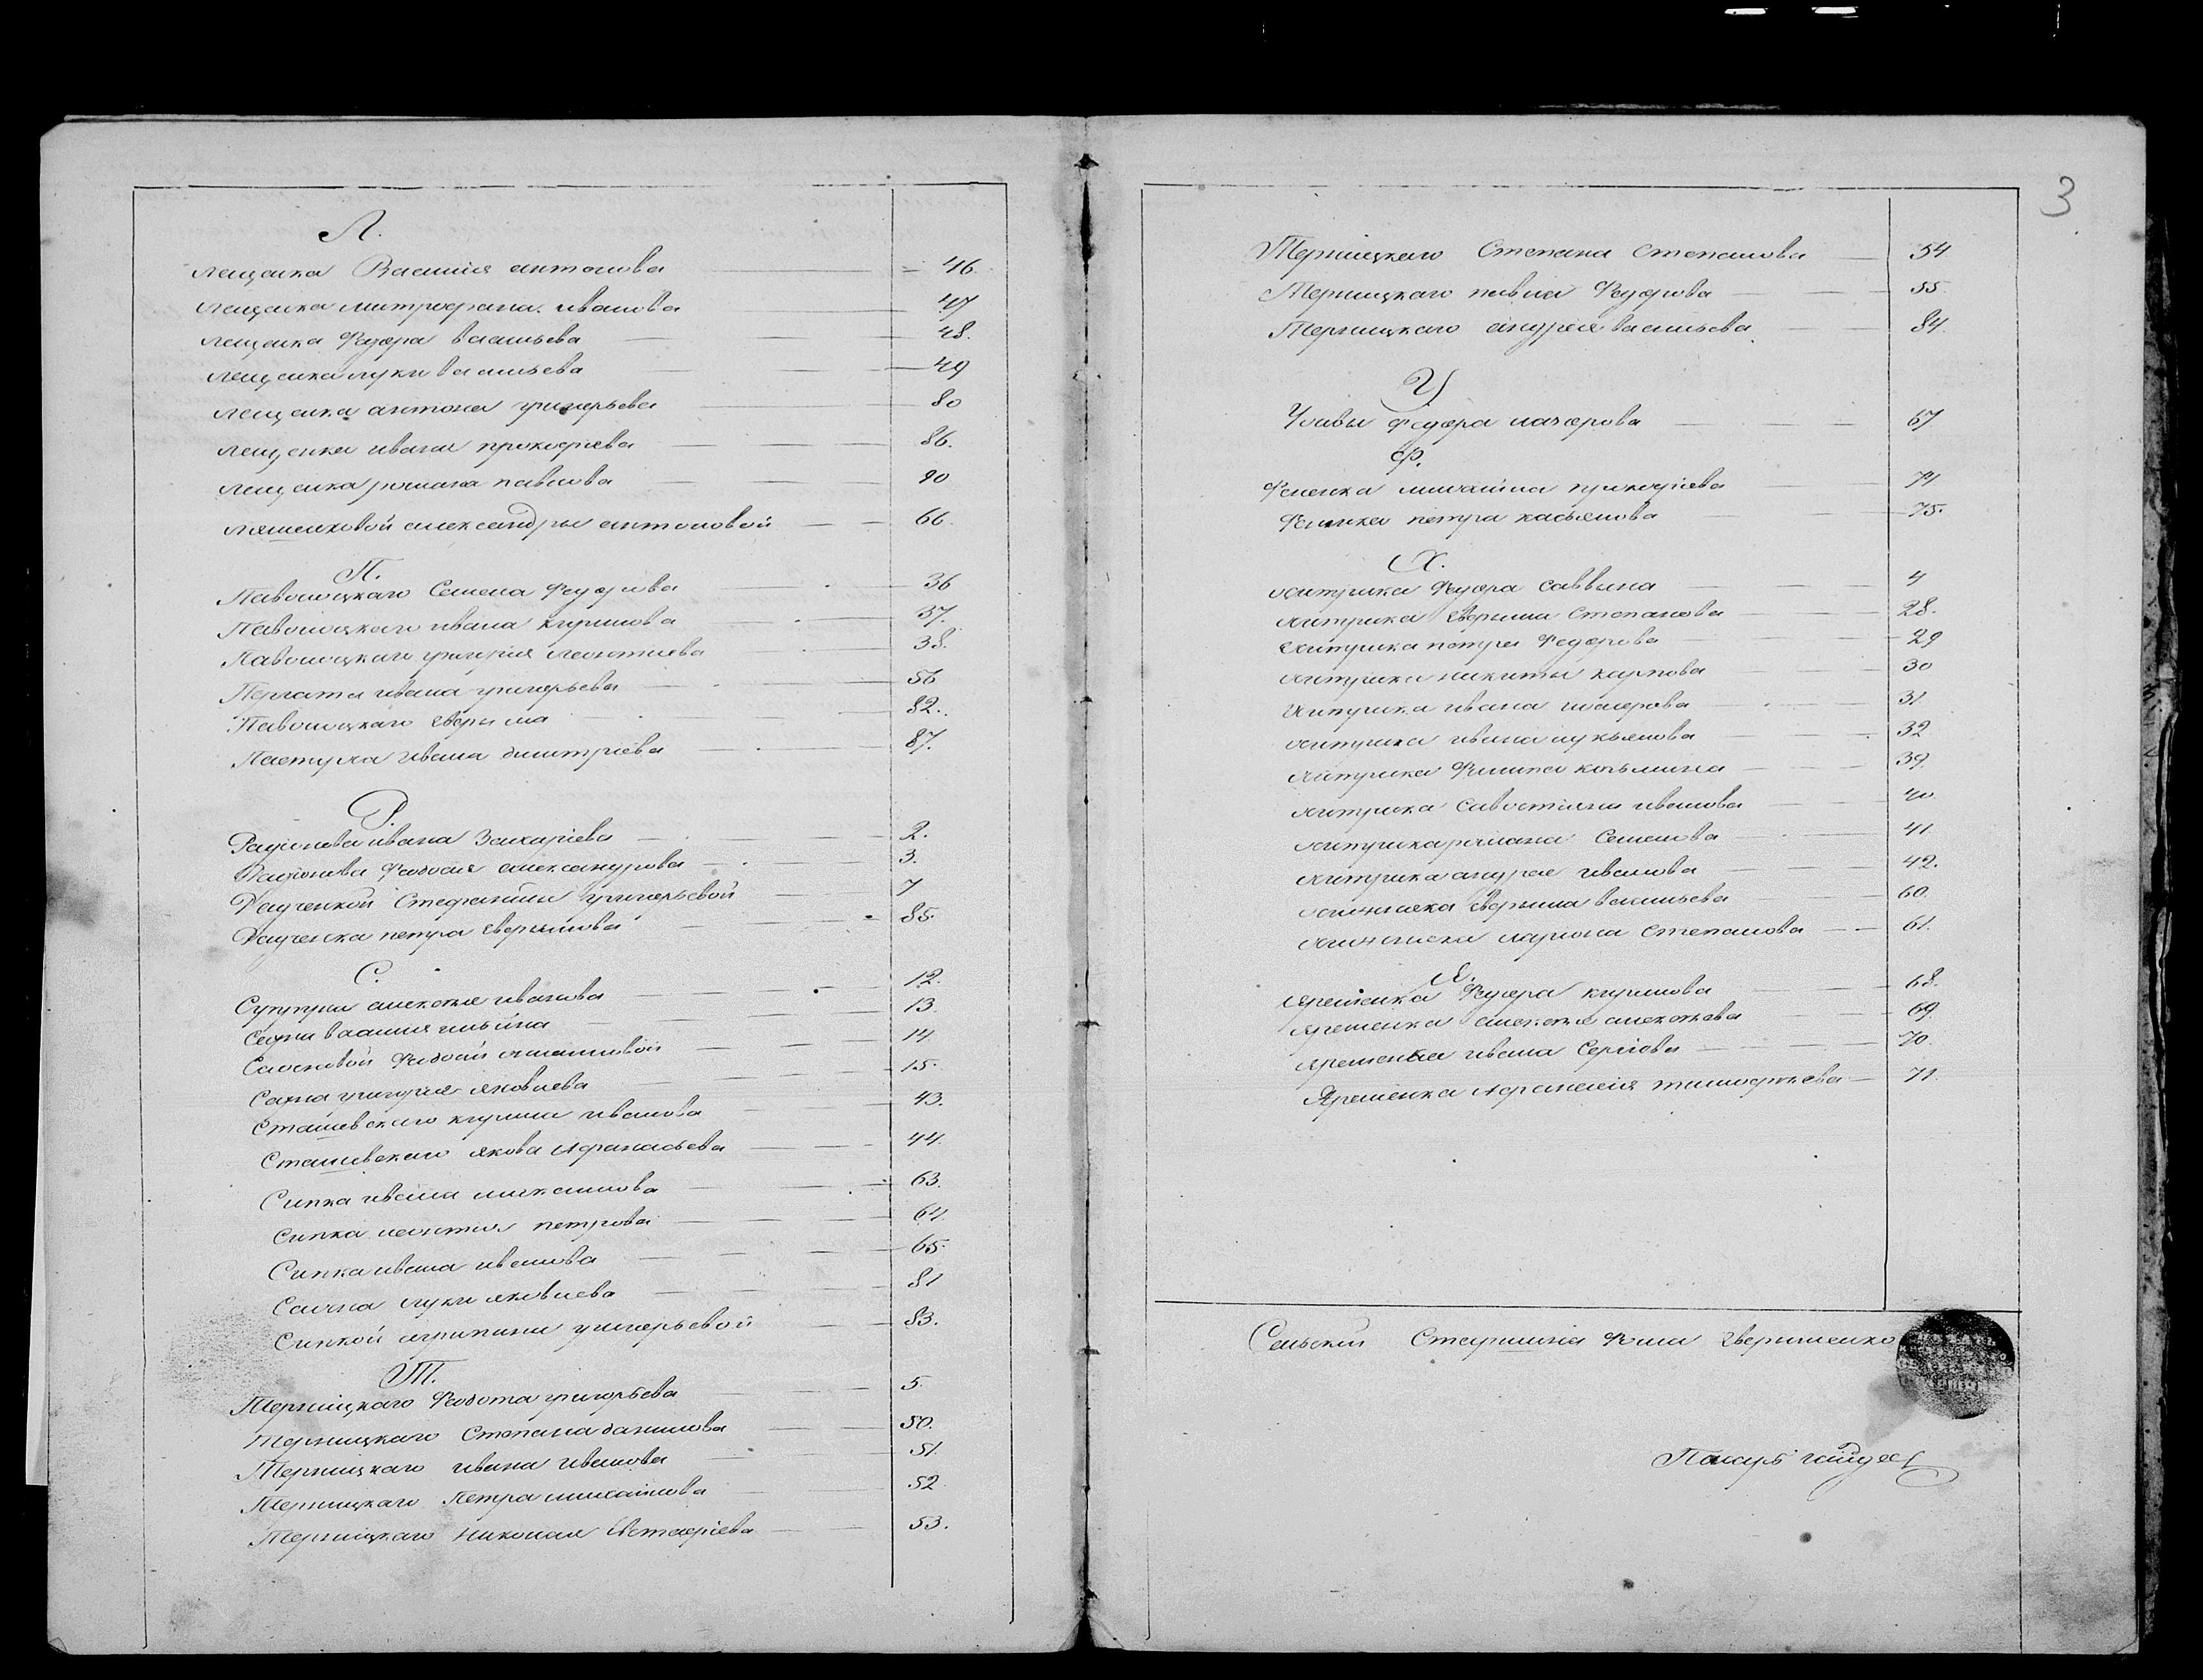 Л.
Лещенка Василия антонова 46.
Лещенка митрофана иванова 47
Лещенка Федора васильева 48.
Лещенка луки васильева 49
Лещенка антона григорьева 80
Лещенка ивана прокофіева 86.
Лещенка романа павлова 90
Ляшенковой александры антоновой 66.
П.
Паволоцкаго Семена Федорова 36
Паволоцкаго ивана кирилова 37.
Паволоцкаго григория леонтиева 38.
ивана григорьева 56
Паволоцкаго 82.
Пастуха ивана димитріева 87.
Р.
Радіонова ивана Захаріева 2.
Радіонова Федосия александрова 3.
Радченкой Стефаниды григорьевой 7
Радченка петра 85.
С.
алексея иванова 12.
василия ильина 13.
14.
григория яковлева 15.
Сташевскаго кирила иванова 43.
Сташевскаго якова Афанасьева 44.
Сипка ивана 63.
Сипка леонтия петрова 64.
Сипка ивана иванова 65.
луки яковлева 81
Сипкой агрипины григорьевой 83.
Т.
Терницкаго Федота григорьева 5.
Терницкаго Степана данилова 50.
Терницкаго ивана иванова 51.
Терницкаго Петра михайлова 52
Терницкаго николая Евстафіева 53.
3
Терницкаго Степана Степанова 54
Терницкаго павла Федорова 55
Терницкаго андрея васильева 84.
У
Федора назарова 67
Ф.
Фененка михаила прокофіева 74
Фененка петра касьянова 75.
Х.
Хитрика Федора саввина 4
Хитрика Степанова 28.
Хитрика петра Федорова 29
Хитрика никиты карпова 30
Хитрика ивана 31
Хитрика ивана лукьянова 32
Хитрика Филипа козьмина 39.
Хитрика савостияна иванова 40
Хитрика романа Семенова 41
Хитрика андрея иванова 42.
васильева 60.
лариона Степанова 61.
Я.
Яременка Федора кирилова 68.
Яременка алексея алексеева 69.
Яременка ивана Сергіева 70.
Яременка Афанасия тимофеева 71.
Сельский Старшина Фома
Писарь